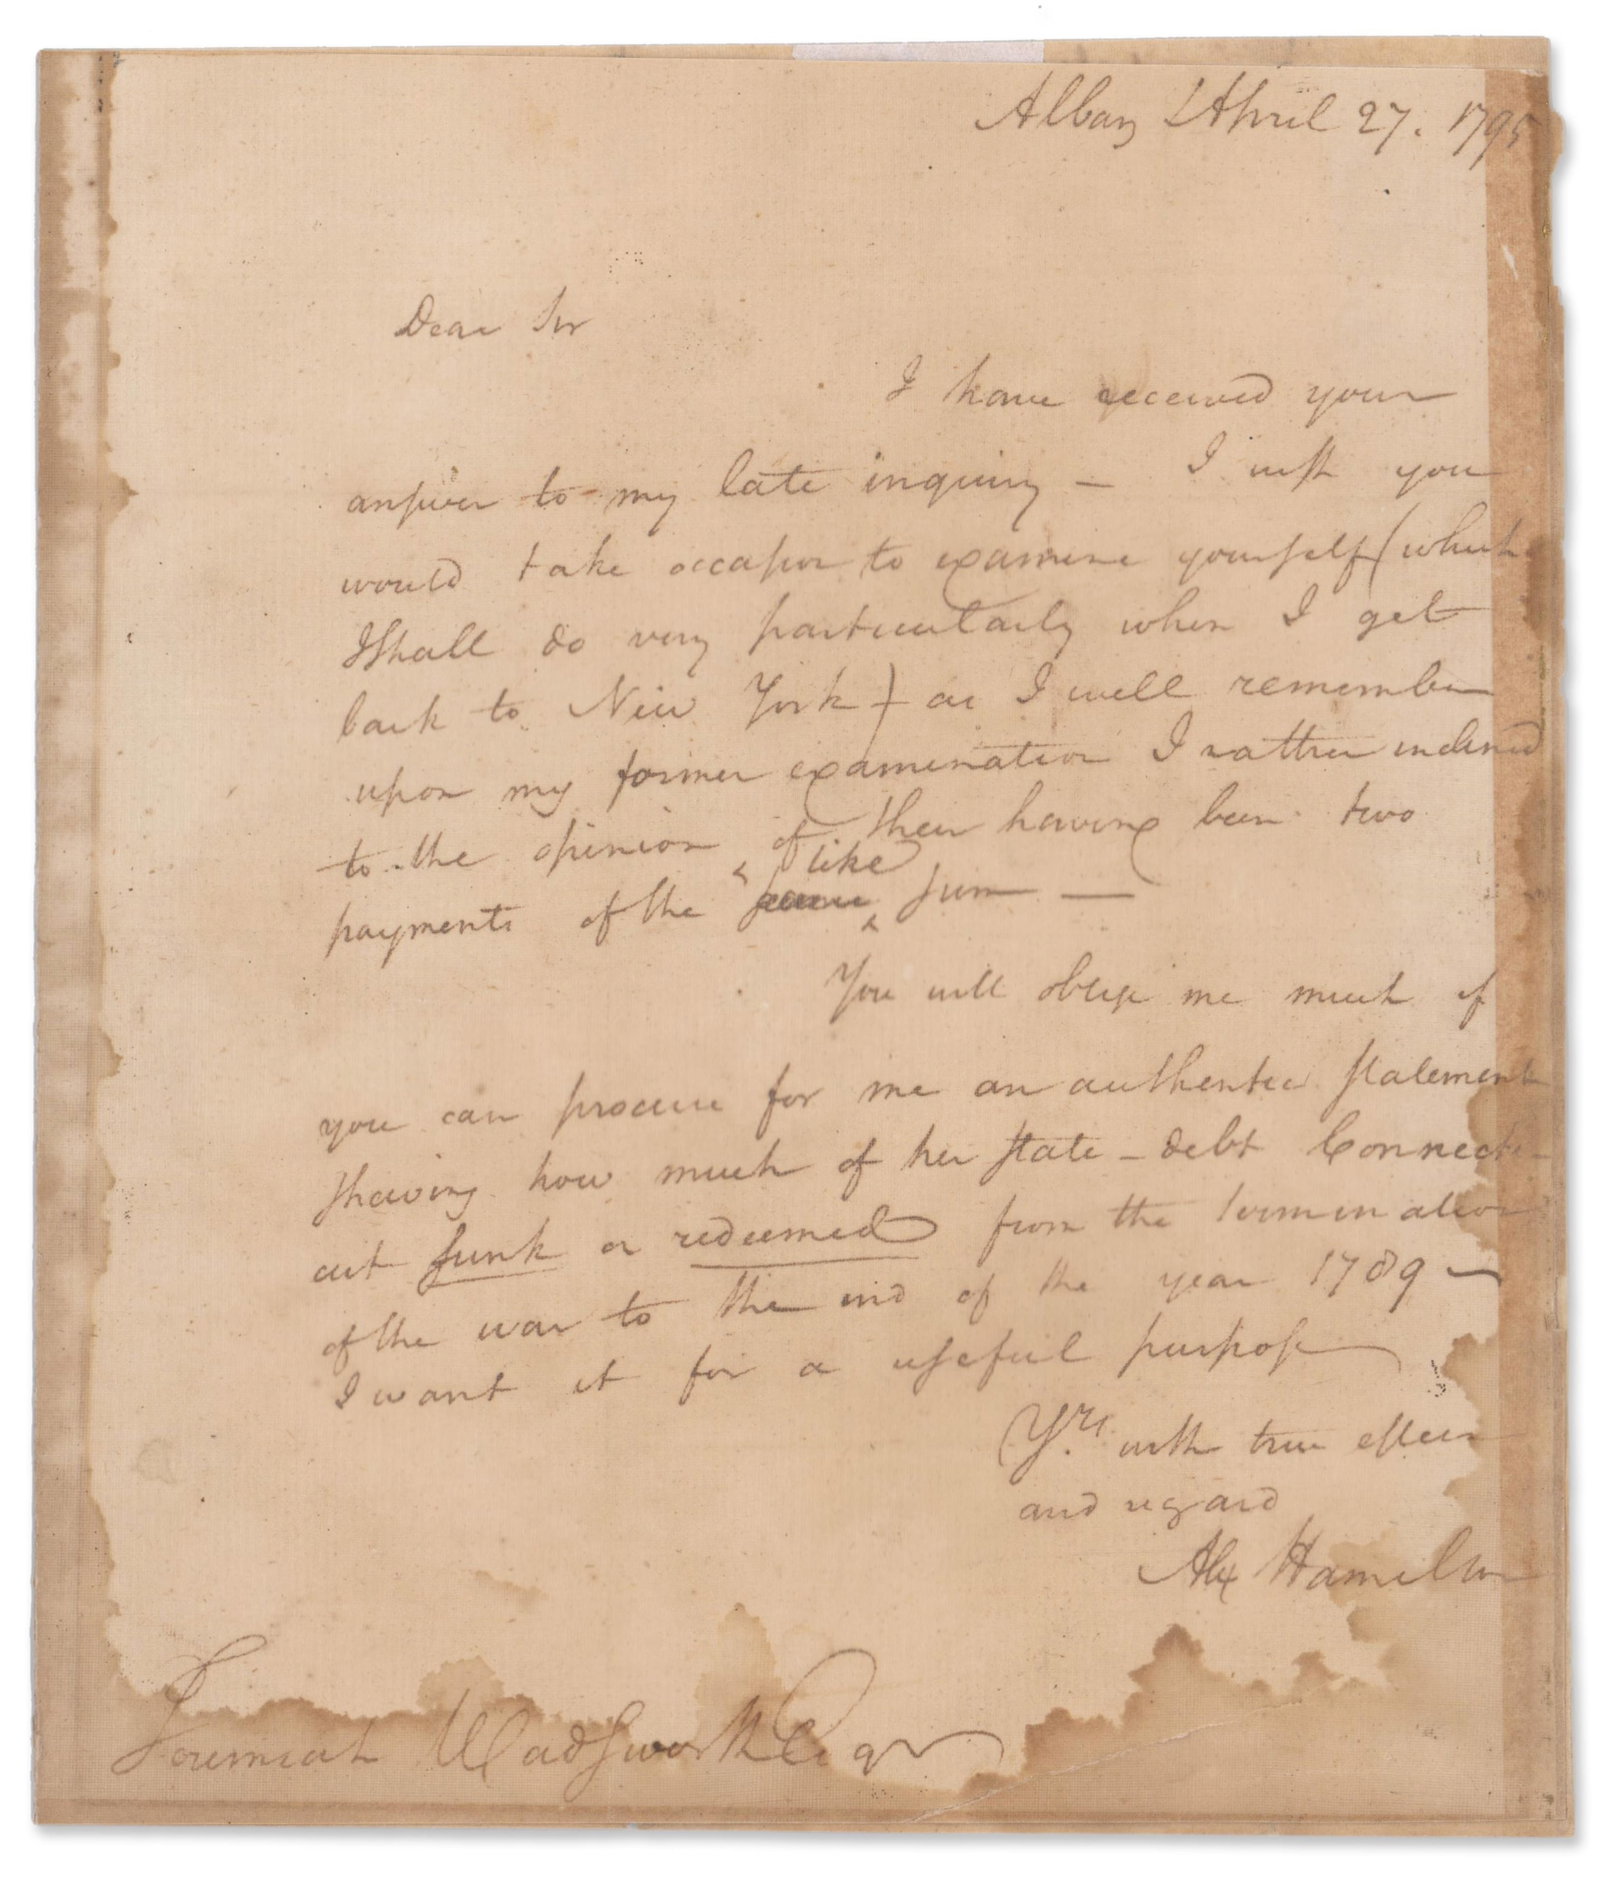 Albany April 27. 1795
Dear Sir
I have received your
answer to my late inquiry — I wish you
would take occasion to examine yourself (which
I shall do very particularly when I get
back to New York) as I well remember
upon my former examination I rather inclined
to the opinion of their having been two
like
payments of the same sum —
You will oblige me much if
you can procure for me an authentic statement
shewing how much of her state-debt Connecti-
cut sunk or redeemed from the termination
of the war to the end of the year 1789 —
I want it for a useful purpose
Yrs. with true esteem
and regard
Alex Hamilton
Jeremiah Wadsworth Esqr